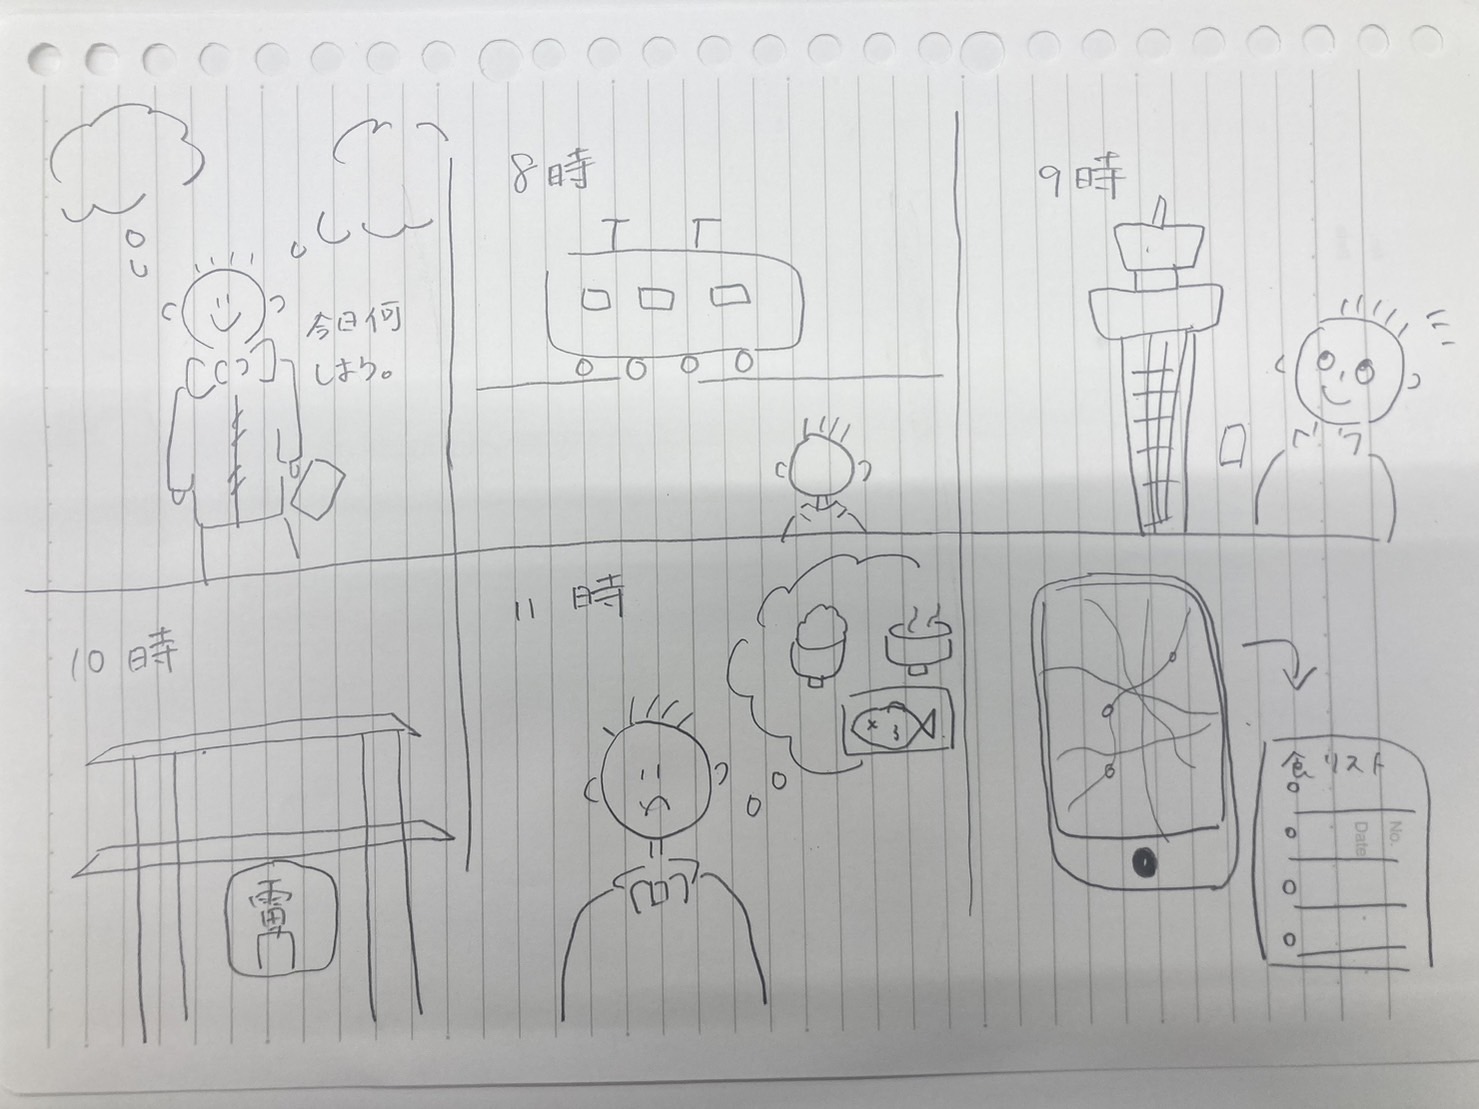 今日何
しよう。
8時
9時
10時
雷門
11時
食リスト
No.
Date